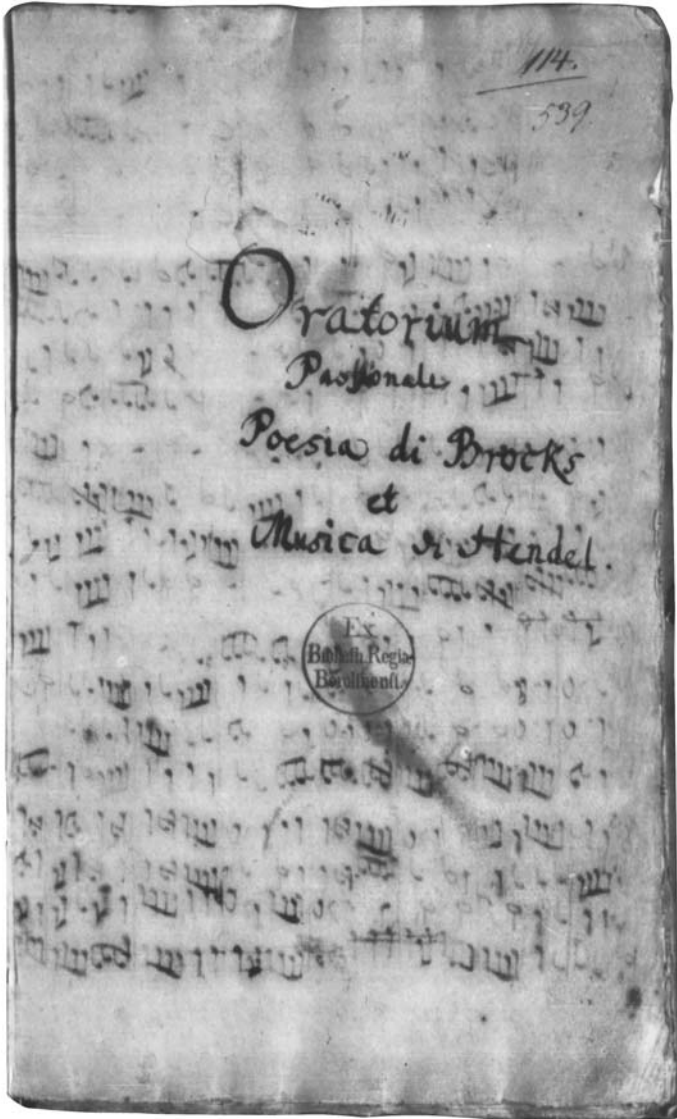 114.
539
Oratorium
Passionale
Poesia di Brocks
et
Musica di Hendel.
Ex
Biblioth. Regia
Berolinensi.